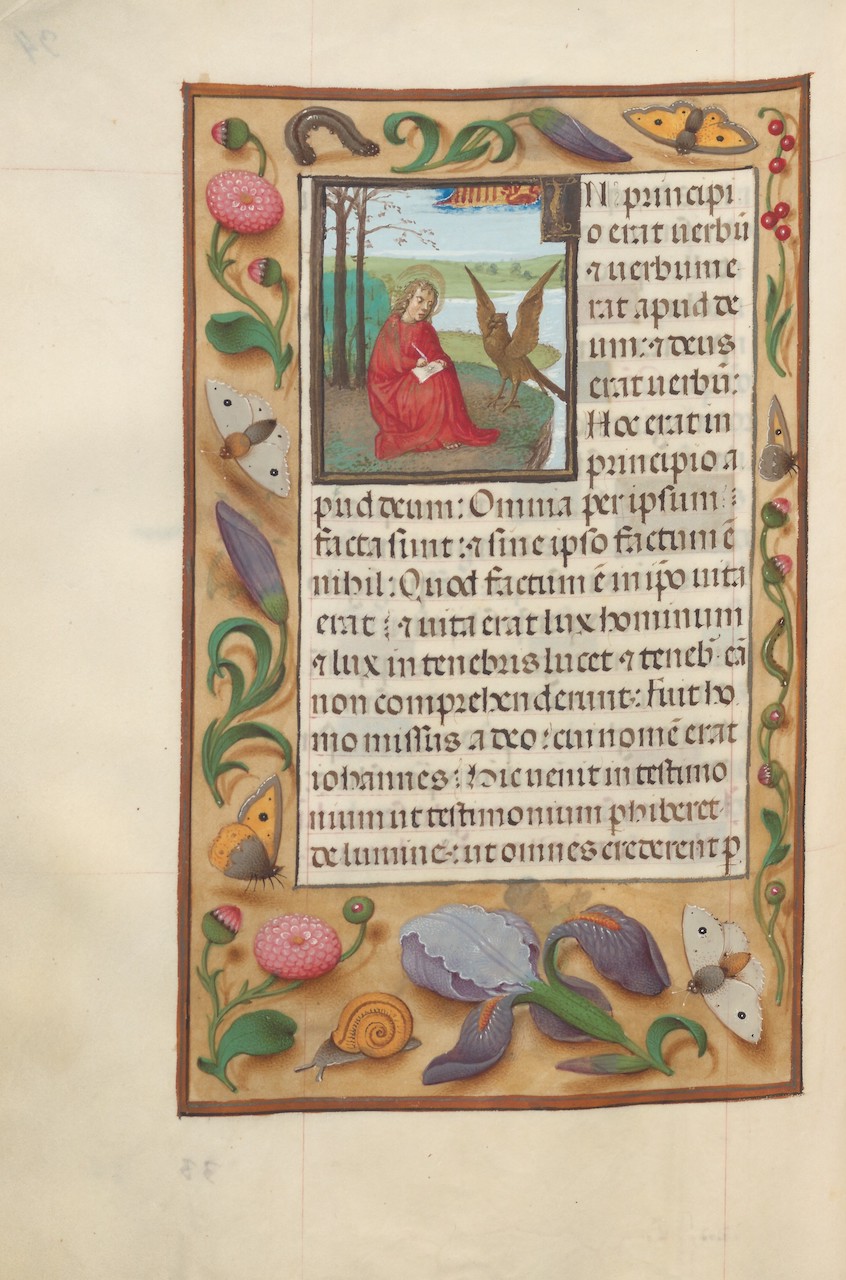 IN principi
o erat uerbū
⁊ uerbum e
rat apud de
um: ⁊ deus
erat uerbū:
Hoc erat in
principio a
pud deum: Omnia per ipsum
facta sunt: ⁊ sine ipso factum ē
nihil: Quod factum ē in ip̄o uita
erat: ⁊ uita erat lux hominum
⁊ lux in tenebris lucet ⁊ teneb̄ eā
non comprehenderunt: Fuit ho
mo missus a deo: cui nomē erat
iohannes: Hic uenit in testimo
nium ut testimonium ꝑhiberet
de lumine: ut omnes crederent ꝑ